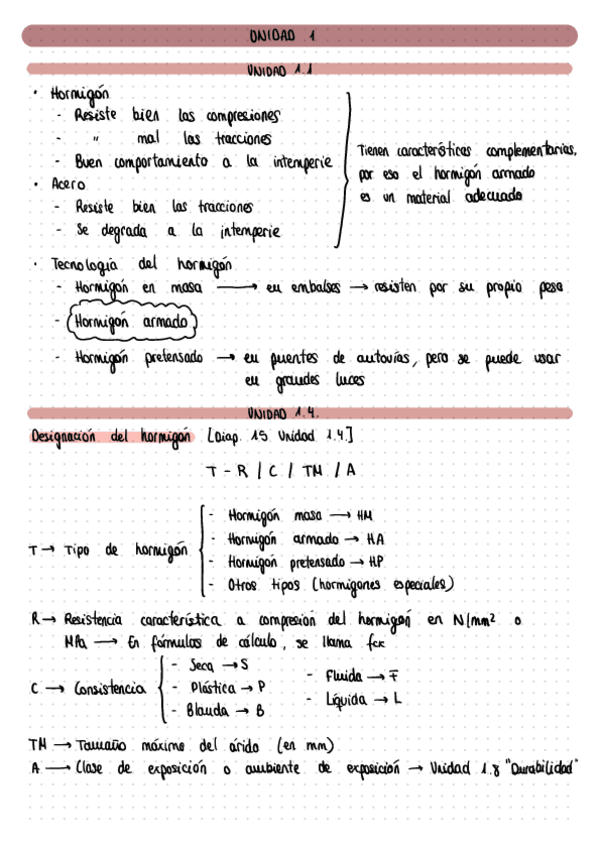 UNIDAD 1
UNIDAD 1.1
· Hormigón
- Resiste bien las compresiones
- " mal las tracciones
- Buen comportamiento a la intemperie
· Acero
- Resiste bien las tracciones
- Se degrada a la intemperie
Tienen características complementarias,
por eso el hormigón armado
es un material adecuado
· Tecnología del hormigón
- Hormigón en masa → en embalses → resisten por su propio peso
- Hormigón armado
- Hormigón pretensado → en puentes de autovías, pero se puede usar
en grandes luces
UNIDAD 1.4.
Designación del hormigón [Diap. 15 Unidad 1.4.]
T - R / C / TM / A
T → Tipo de hormigón
- Hormigón masa → HM
- Hormigón armado → HA
- Hormigón pretensado → HP
- Otros tipos (hormigones especiales)
R → Resistencia característica a compresión del hormigón en N/mm² o
MPa → En fórmulas de cálculo, se llama fck
C → Consistencia
- Seca → S
- Plástica → P
- Blanda → B
- Fluida → F
- Líquida → L
TM → Tamaño máximo del árido (en mm)
A → Clase de exposición o ambiente de exposición → Unidad 1.8 "Durabilidad"